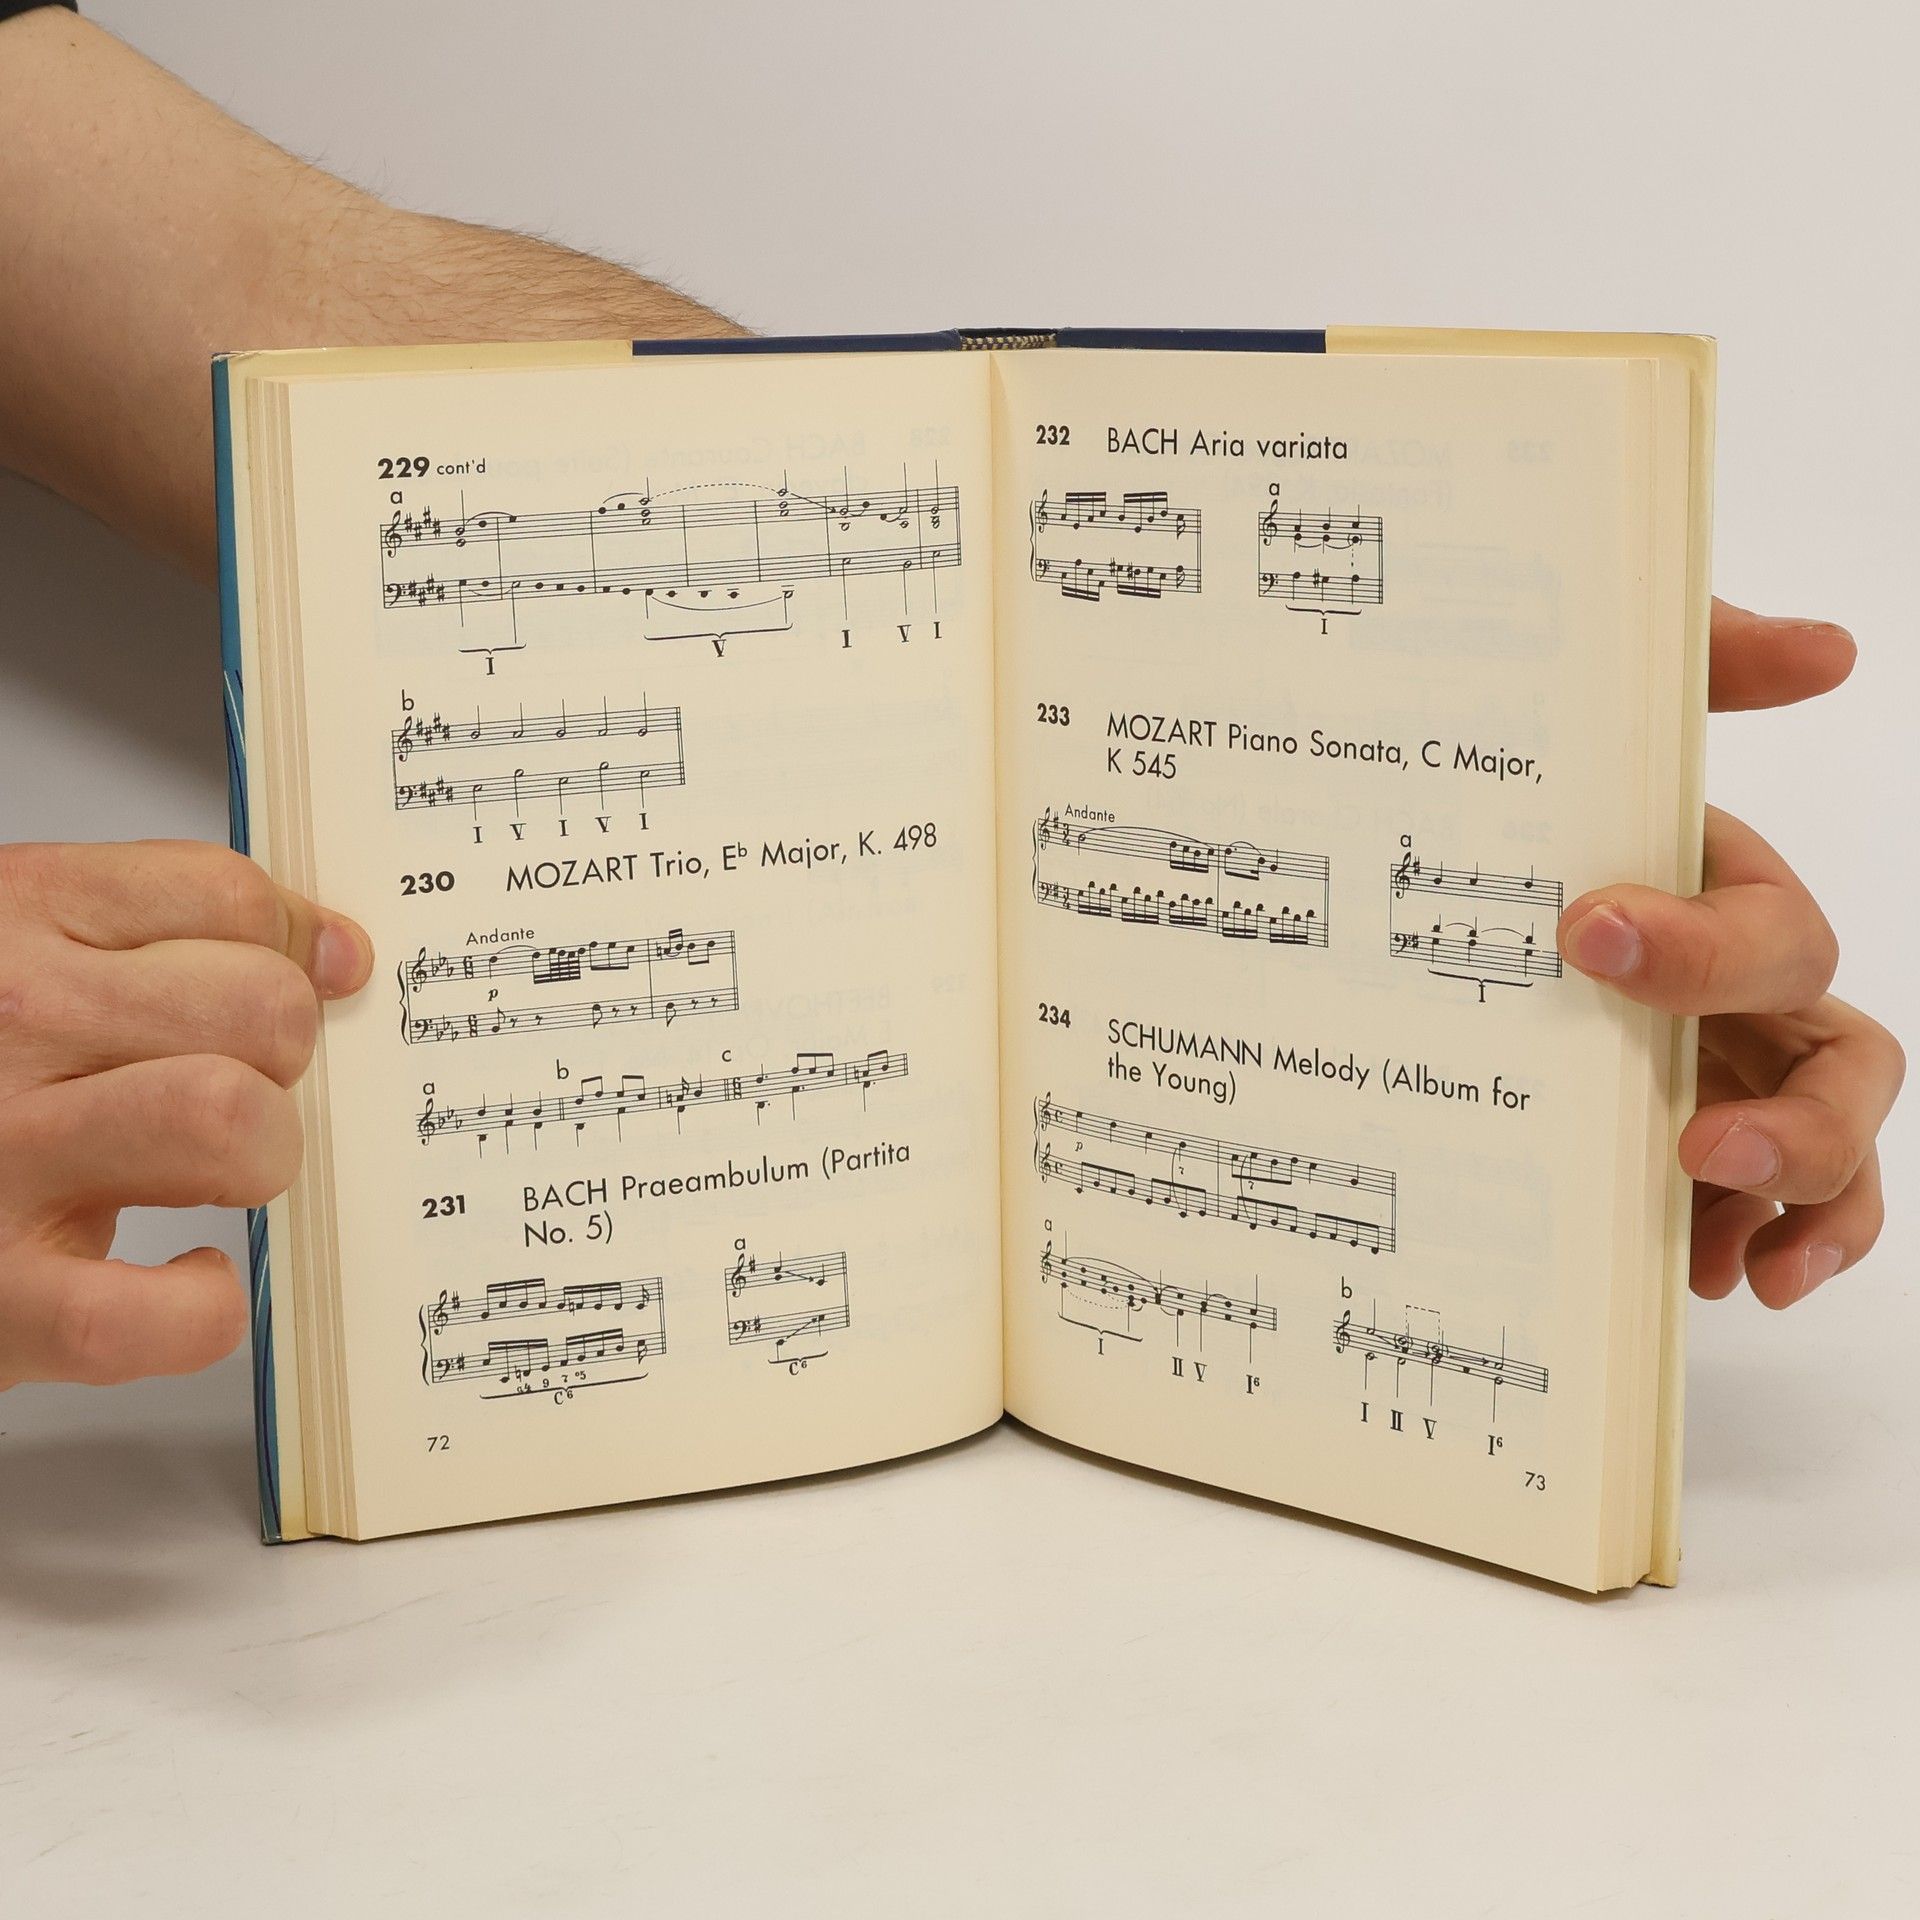 229 cont'd
a
I V I V I
b
I V I V I
230 MOZART Trio, E♭ Major, K. 498
Andante
p
a b c
231 BACH Praeambulum (Partita
No. 5)
a
9 7
C⁶
C⁶
72
232 BACH Aria variata
a
I
233 MOZART Piano Sonata, C Major,
K 545
Andante
a
I
234 SCHUMANN Melody (Album for
the Young)
p
7
7
a
I II V I⁶
b
I II V I⁶
73